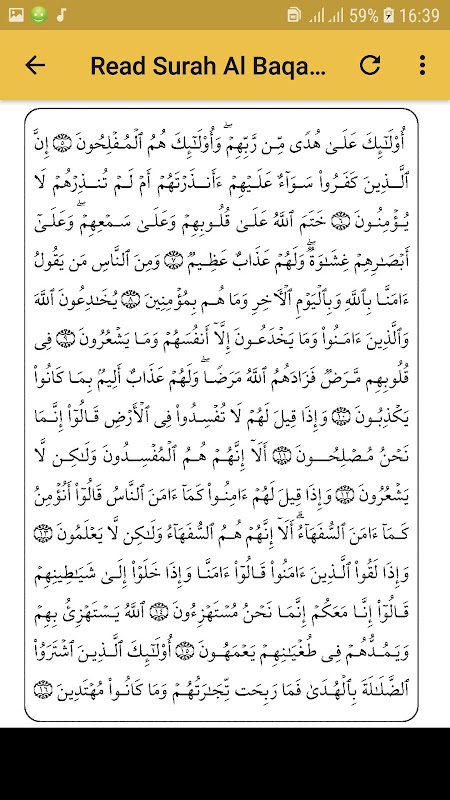 59% 16:39
Read Surah Al Baqa...
أُوْلَـٰٓئِكَ عَلَىٰ هُدًى مِّن رَّبِّهِمۡۖ وَأُوْلَـٰٓئِكَ هُمُ ٱلۡمُفۡلِحُونَ ۝٥ إِنَّ
ٱلَّذِينَ كَفَرُواْ سَوَآءٌ عَلَيۡهِمۡ ءَأَنذَرۡتَهُمۡ أَمۡ لَمۡ تُنذِرۡهُمۡ لَا
يُؤۡمِنُونَ ۝٦ خَتَمَ ٱللَّهُ عَلَىٰ قُلُوبِهِمۡ وَعَلَىٰ سَمۡعِهِمۡۖ وَعَلَىٰٓ
أَبۡصَـٰرِهِمۡ غِشَـٰوَةٞۖ وَلَهُمۡ عَذَابٌ عَظِيمٞ ۝٧ وَمِنَ ٱلنَّاسِ مَن يَقُولُ
ءَامَنَّا بِٱللَّهِ وَبِٱلۡيَوۡمِ ٱلۡأٓخِرِ وَمَا هُم بِمُؤۡمِنِينَ ۝٨ يُخَـٰدِعُونَ ٱللَّهَ
وَٱلَّذِينَ ءَامَنُواْ وَمَا يَخۡدَعُونَ إِلَّآ أَنفُسَهُمۡ وَمَا يَشۡعُرُونَ ۝٩ فِي
قُلُوبِهِم مَّرَضٞ فَزَادَهُمُ ٱللَّهُ مَرَضٗاۖ وَلَهُمۡ عَذَابٌ أَلِيمُۢ بِمَا كَانُواْ
يَكۡذِبُونَ ۝١٠ وَإِذَا قِيلَ لَهُمۡ لَا تُفۡسِدُواْ فِي ٱلۡأَرۡضِ قَالُوٓاْ إِنَّمَا
نَحۡنُ مُصۡلِحُونَ ۝١١ أَلَآ إِنَّهُمۡ هُمُ ٱلۡمُفۡسِدُونَ وَلَـٰكِن لَّا
يَشۡعُرُونَ ۝١٢ وَإِذَا قِيلَ لَهُمۡ ءَامِنُواْ كَمَآ ءَامَنَ ٱلنَّاسُ قَالُوٓاْ أَنُؤۡمِنُ
كَمَآ ءَامَنَ ٱلسُّفَهَآءُۗ أَلَآ إِنَّهُمۡ هُمُ ٱلسُّفَهَآءُ وَلَـٰكِن لَّا يَعۡلَمُونَ ۝١٣
وَإِذَا لَقُواْ ٱلَّذِينَ ءَامَنُواْ قَالُوٓاْ ءَامَنَّا وَإِذَا خَلَوۡاْ إِلَىٰ شَيَـٰطِينِهِمۡ
قَالُوٓاْ إِنَّا مَعَكُمۡ إِنَّمَا نَحۡنُ مُسۡتَهۡزِءُونَ ۝١٤ ٱللَّهُ يَسۡتَهۡزِئُ بِهِمۡ
وَيَمُدُّهُمۡ فِي طُغۡيَـٰنِهِمۡ يَعۡمَهُونَ ۝١٥ أُوْلَـٰٓئِكَ ٱلَّذِينَ ٱشۡتَرَوُاْ
ٱلضَّلَـٰلَةَ بِٱلۡهُدَىٰ فَمَا رَبِحَت تِّجَـٰرَتُهُمۡ وَمَا كَانُواْ مُهۡتَدِينَ ۝١٦